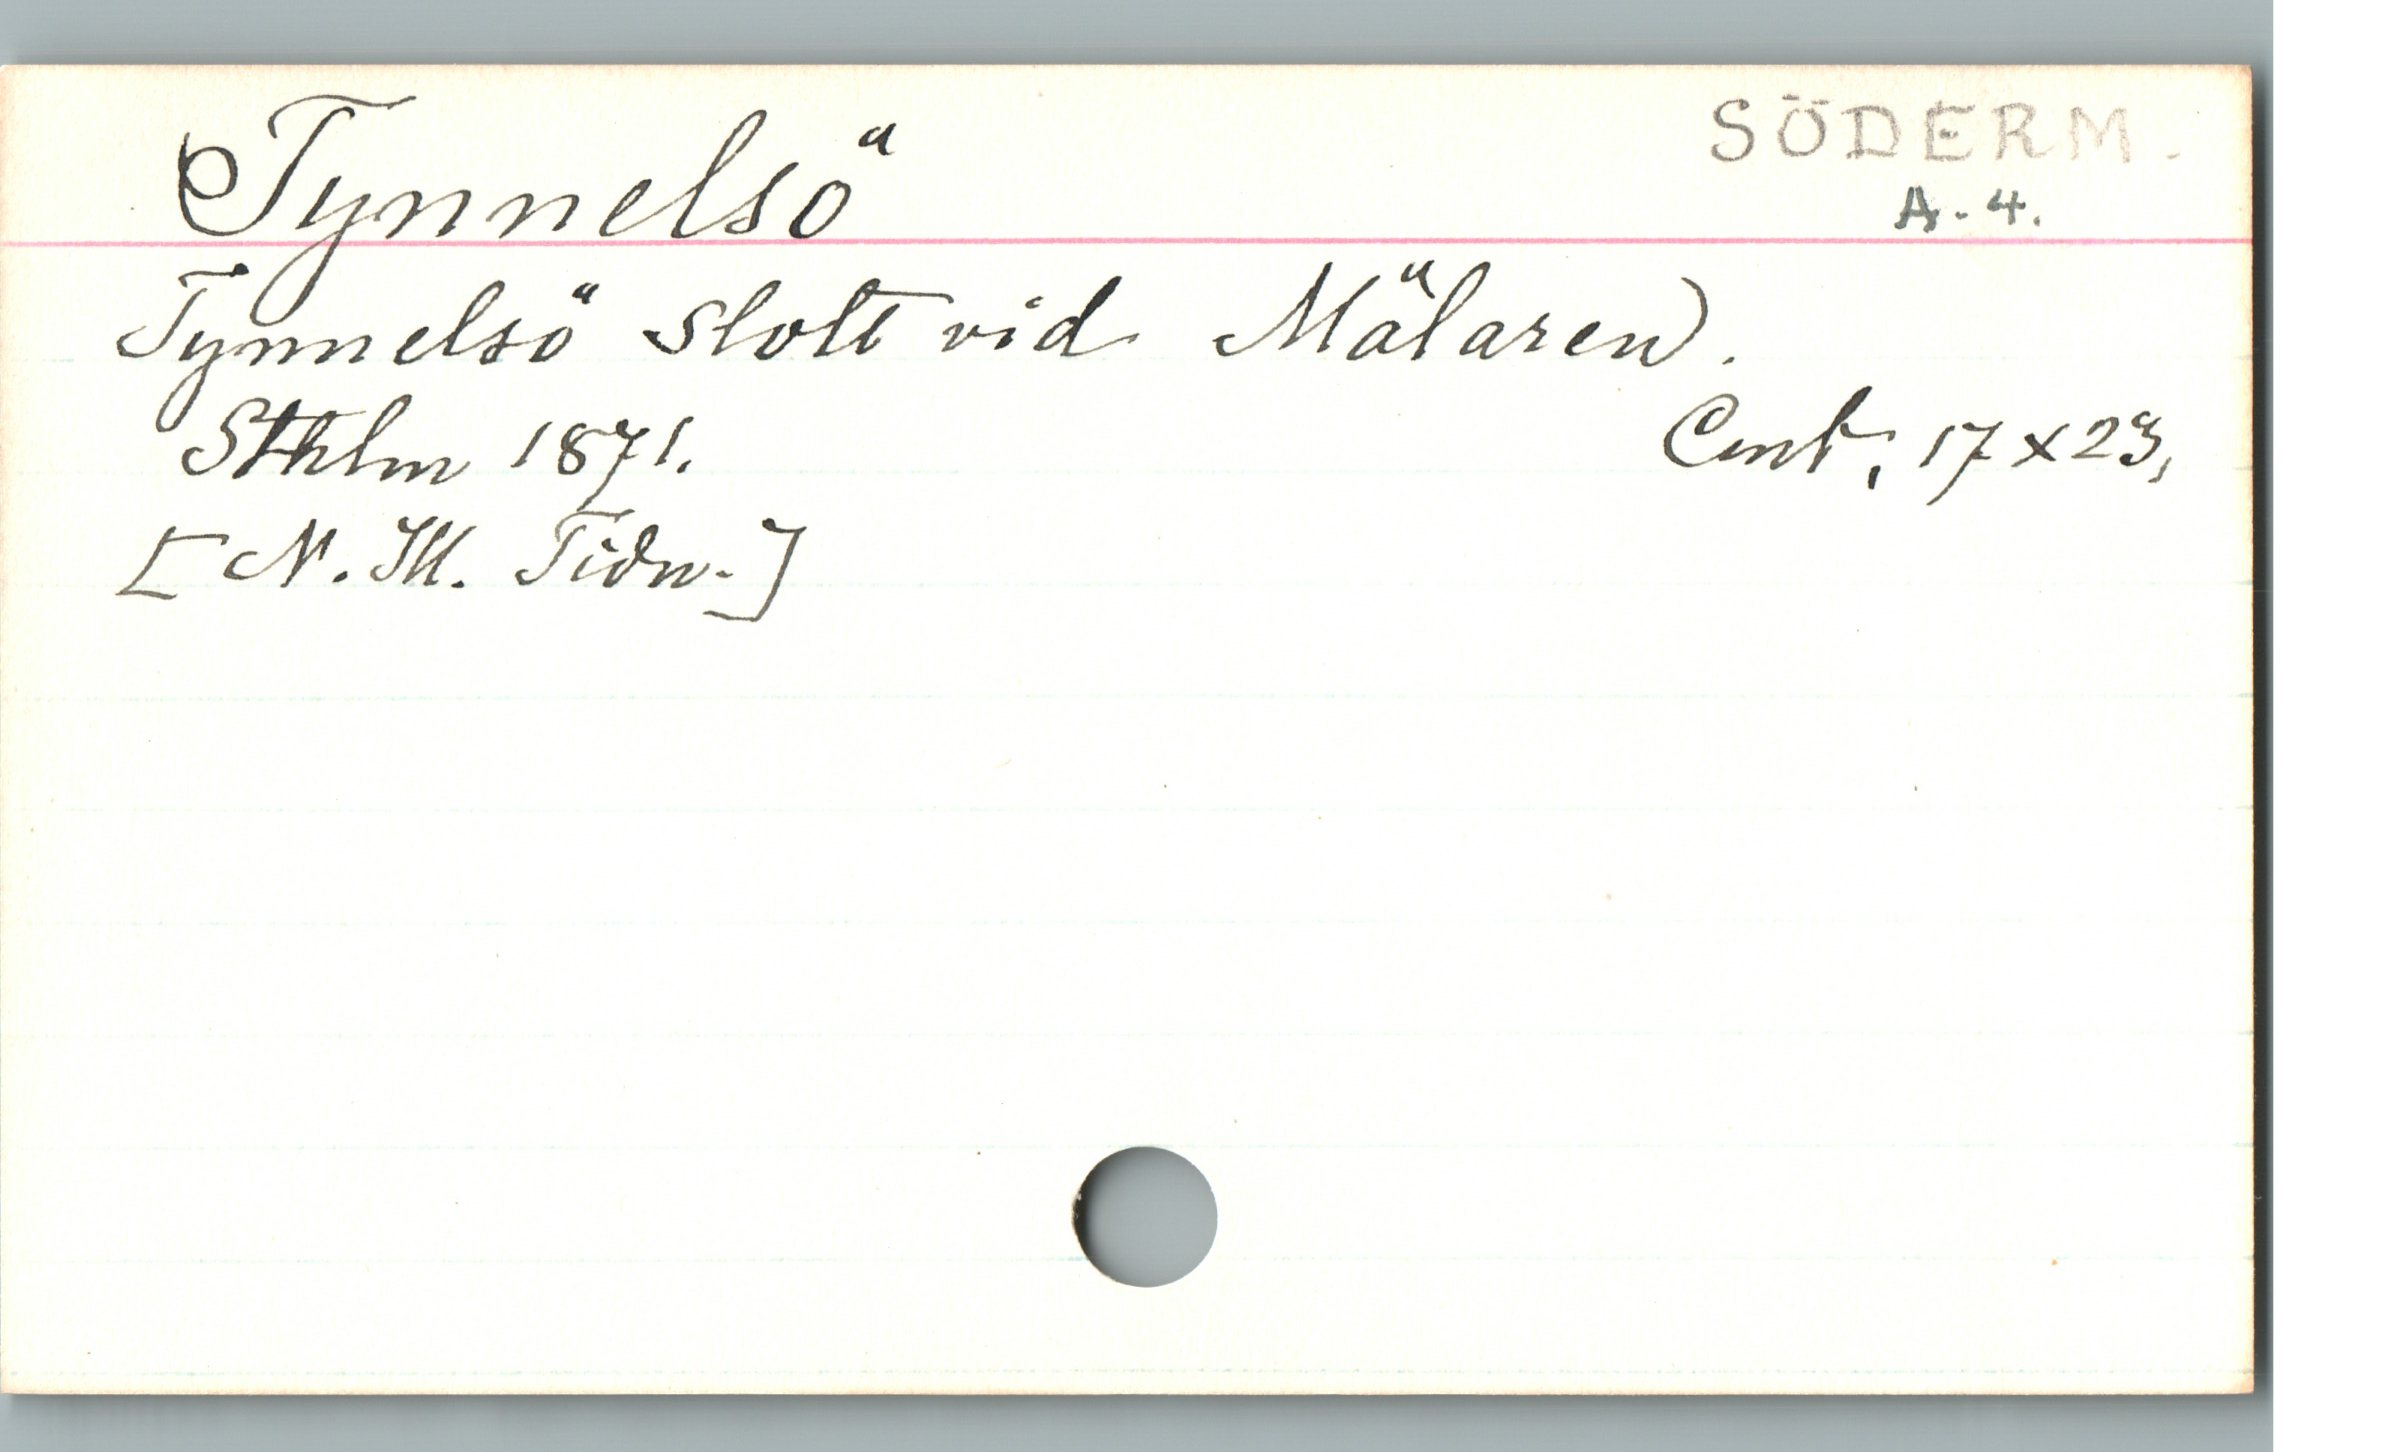 Tynnelsö
SÖDERM.
A.4.
Tynnelsö Slott vid Mälaren.
Sthlm 1871.
Cmt. 17 x 23,
[N. Ill. Tidn.]